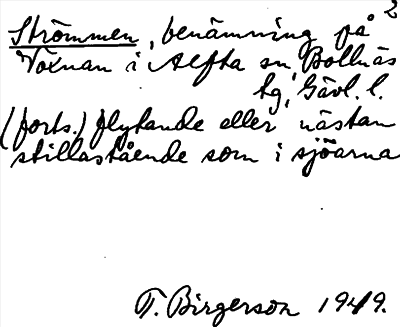 2
Strömmen, benämning på
Voxnan i Alfta sn, Bollnäs
tg, Gävl. l.
(forts.) flytande eller nästan
stillastående som i sjöarna
T. Birgerson 1949.